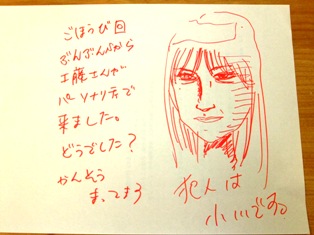 ごほうび回
ぶんぶんぶんから
工藤さんが
パーソナリティで
来ました。
どうでした？
かんそう
まってまろ
犯人は
小川である